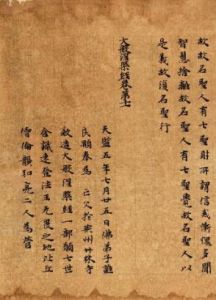 故故名聖人有七聖財所謂信戒慚愧多聞
智慧捨離故名聖人有七聖覺故名聖人以
是義故復名聖行
大般涅槃經卷第十一
天監五年七月廿五日佛弟子譙
良顒奉為亡父於荊州竹林寺
敬造大般涅槃經一部願七世
含識速登法王无畏之地比丘
僧倫龔弘亮二人為營